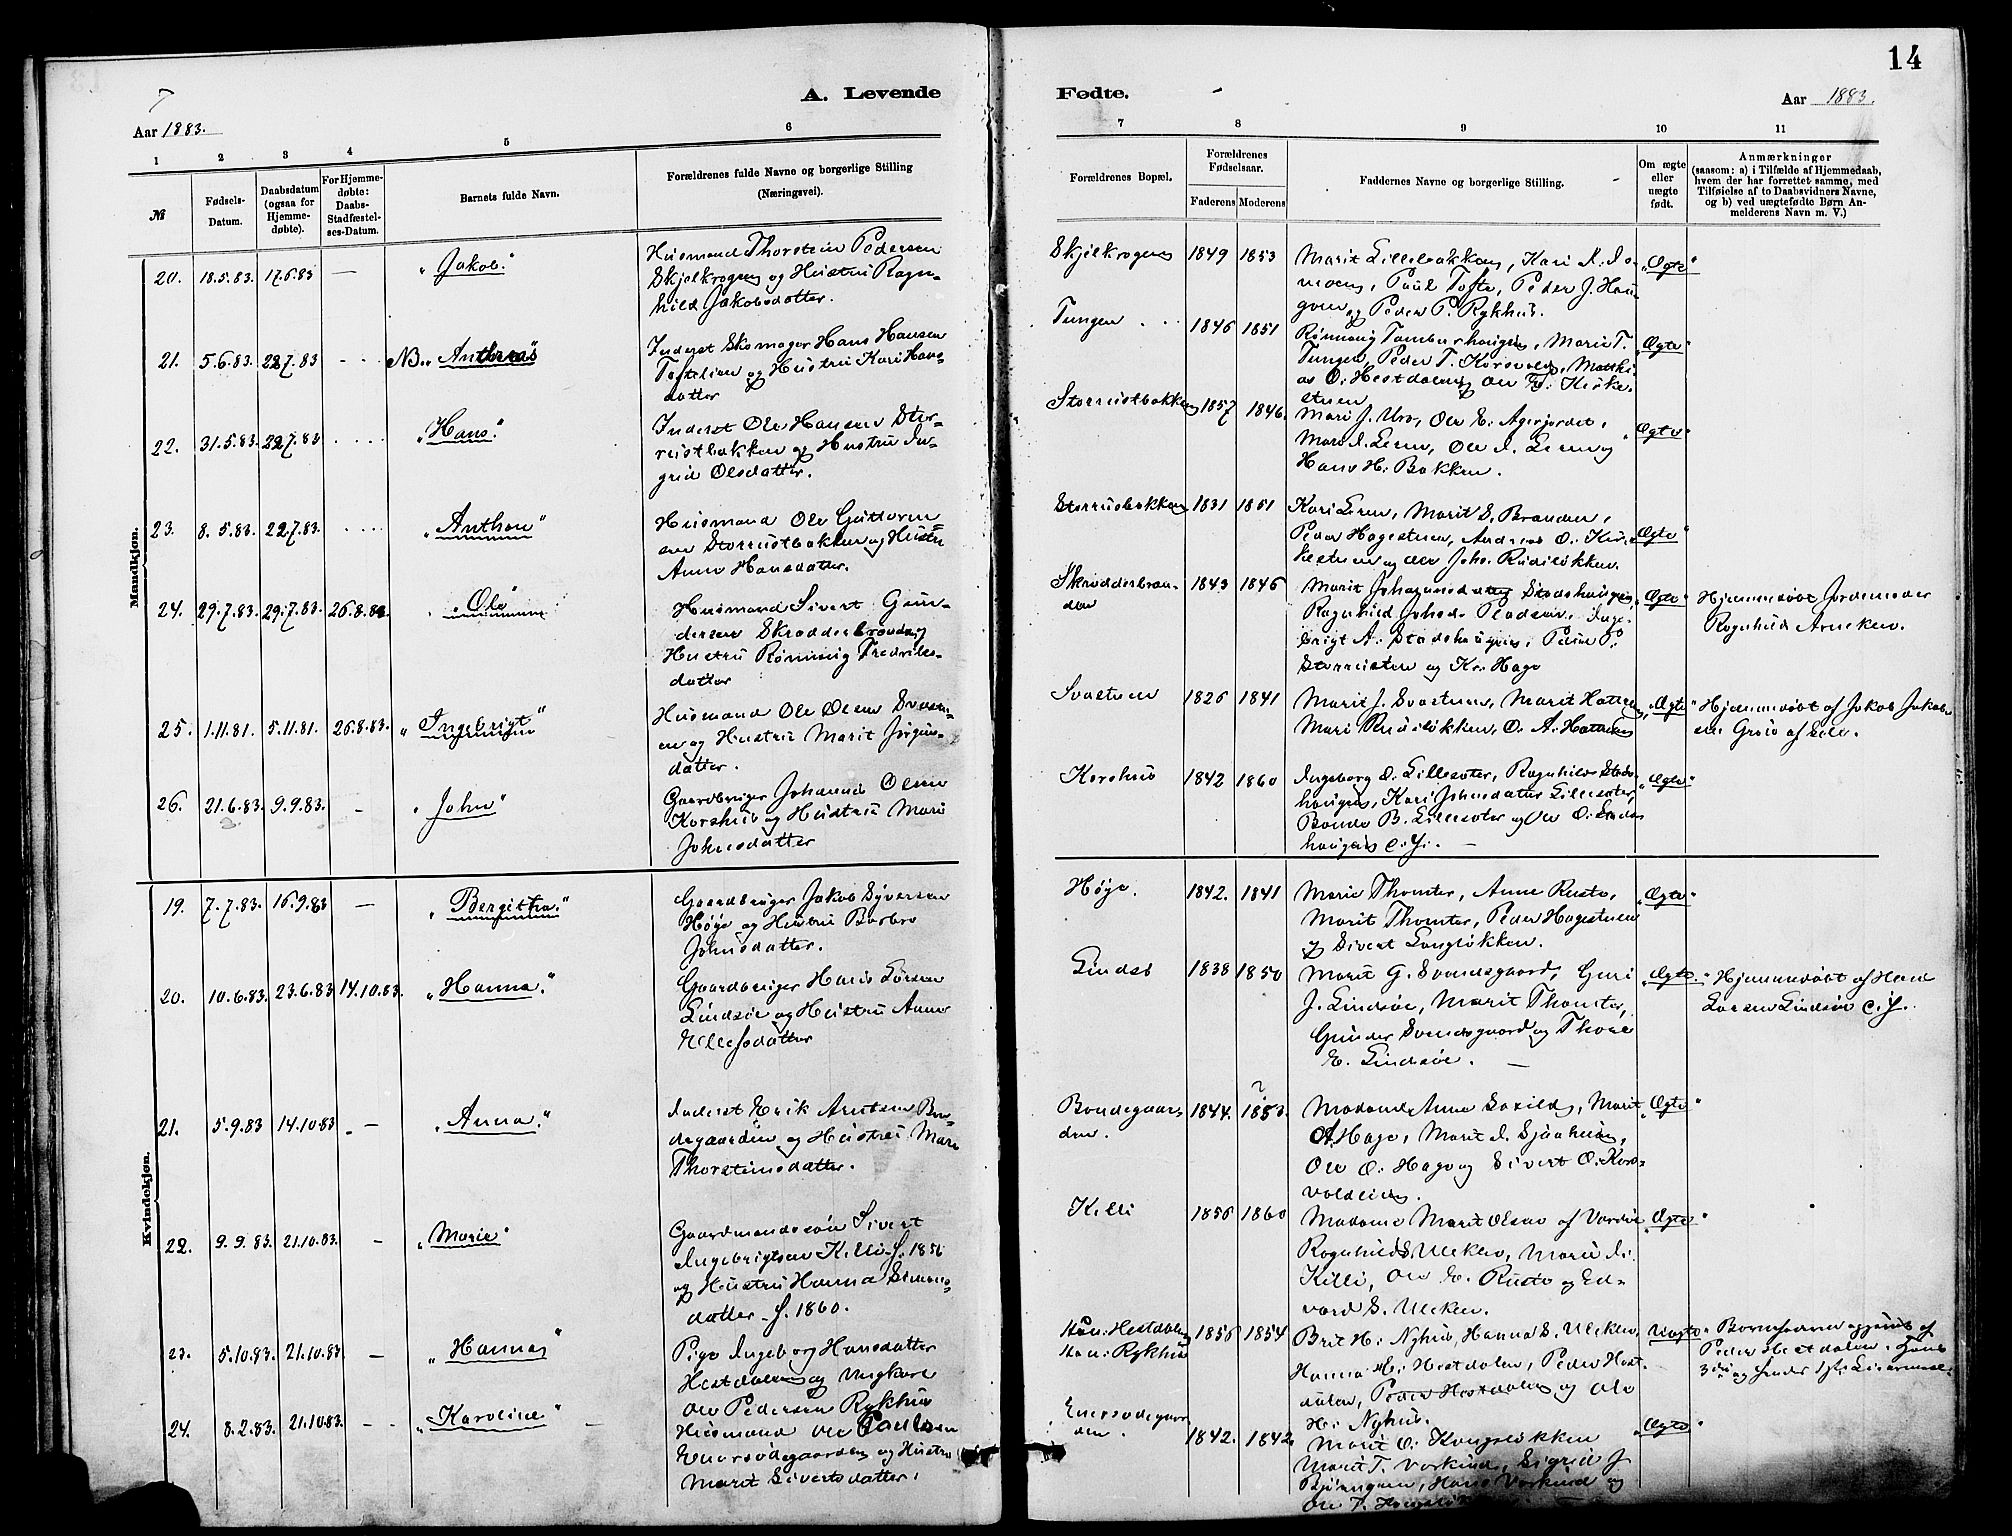 14
A. Levende
Fødte.
Aar 1883.
Aar 1883.
1 2 3 4 5 6
7 8 9 10 11
№
Fødsels-Datum.
Daabsdatum (ogsaa for Hjemme-døbte).
For Hjemme-døbte: Daabs-Stadfæstel-ses-Datum.
Barnets fulde Navn.
Forældrenes fulde Navne og borgerlige Stilling
(Næringsvei).
Forældrenes Bopæl.
Forældrenes Fødselsaar.
Faderens Moderens
Faddernes Navne og borgerlige Stilling.
Om ægte eller uægte født.
Anmærkninger
(saasom: a) i Tilfælde af Hjemmedaab,
hvem der har forrettet samme, med
Tilføielse af to Daabsvidners Navne,
og b) ved uægtefødte Børn An-
melderens Navn m. V.)
Mandkjøn.
20. 18.5.83. 17.6.83 — "Jakob."
Husmand Thorstein Pedersen
Skjelkrogen og Hustru Ragn-
hild Jakobsdatter.
Skjelkrogen 1849 1853
Marit Lillebakken, Kari
Paul Tofte, Peder J. Hau-
gen og Peder P. Rykhus.
"Ægte"
21. 5.6.83. 22.7.83 NB. "Anthres"
Inderst Skomager Hans Hansen
Toftelien og Hustru Kari Hans-
datter
Tungen 1846 1851
Rønnaug Tamburhaugen, Marie T.
Tungen, Peder T. Korsvold, Mathi-
as O. Hestdalen og Ole
"Ægte"
22. 31.5.83. 22.7.83 "Hans."
Inderst Ole Hansen Stor-
rustbakken og Hustru In-
grid Olsdatter.
Storrustbakken 1857 1846.
Mari J. Uro, Ole E. Agerjordet,
Hans H. Bakken.
"Ægte"
23. 8.5.83. 22.7.83. "Anthon"
Husmand Ole Guttorm
sen Storrustbakken og Hustru
Anne Hansdatter.
Storrusbakken 1831 1851
Kari Leren, Marit S. Branden,
Peder Hagesteen, Andreas O. Kir-
kesteen og Ole Joh. Rudiløkken.
"Ægte"
24. 29.7.83. 29.7.83. 26.8.83 "Ole"
Husmand Sivert Gun-
dersen Skrædderbranden og
Hustru Rønnaug Fredriks-
datter
Skrædderbran-
den 1843 1846
Marit Johannesdatter Stadshaugen,
Ragnhild Johnsd. Pladsen, Inge-
brigt A. Stadshaugen, Paul P.
Storrusten og Kr. Hage
"Ægte"
Hjemmedøbt Jordemoder
Ragnhild Arneken.
25. 1.11.81. 5.11.81. 26.8.83. "Ingebrigt"
Husmand Ole Olsen Svaste-
en og Hustru Marit Jørgens-
datter.
Svasteen 1826 1841
Marit J. Svasteen, Marit Hatten,
Mari Rusiløkken, O. A. Hattren
"Ægte"
Hjemmedøbt af Jakob Jakob
sen
26. 21.6.83. 9.9.83. — "John"
Gaardbruger Johannes Olsen
Korshus og Hustru Mari
Johnsdatter
Korshus 1842 1860
Ingeborg O. Lillesæter, Ragnhild Stads-
haugen, Kari Johnsdatter Lillesæter,
Bonde B. Lillesæter og Ole O. Stads-
haugen
"Ægte"
Kvindekjøn.
19. 7.7.83. 16.9.83 — "Bergitha."
Gaardbruger Jakob Syversen
Høye og Hustru Barbro
Johnsdatter.
Høye. 1842. 1841
Marie Thomter, Anne Rusto,
Marit Thomter, Peder Hagesteen
og Sivert Langløkken.
"Ægte"
20. 10.6.83. 23.6.83 14.10.83. "Hanna."
Gaardbruger Hans Larsen
Lindsøe og Hustru Anne
Ellefsdatter
Lindsø 1838 1850
Marit G. Svendsgaard, Guri
J. Lindsøe, Marit Thomter,
Gunder Svendsgaard og Thore
E. Lindsøe. —
"Ægte"
Hjemmedøbt af Hans
Larsen Lindsøe
21. 5.9.83 14.10.83 — "Anna."
Inderst Erik Arntsen Bon-
degaarden og Hustru Mari
Thorsteinsdatter.
Bondegaar-
den. 1844. 1853.
Madame Anne Saxild, Marit
A. Hage, Marit I. Sjaaheim,
Ole O. Hage og Sivert O. Kors-
voldlien.
"Ægte"
22. 9.9.83. 21.10.83. — "Marie"
Gaardmandssøn Sivert
Ingebrigtsen Killi f. 1856
og Hustru Hanna Simens-
datter f. 1860.
Killi 1856 1860
Madame Marit Olsen af Vardø
Ragnhild S. Ulekleiv, Marit I.
Killi, Ole E. Rusto og Ed-
vard S. Uleklev.
"Ægte"
23. 5.10.83. 21.10.83. — "Hanna"
Pige Ingeborg Hansdatter
Hestdalen og Ungkarl
Ole Pedersen Rykhus
Hun: Hestdalen
Han: Rykhus 1856 1854
Brit H. Nyhus, Hanna S. Uleklev,
Hanna H. Hestdalen, Peder Hest-
dalen, Peder Hestdalen og Ole
H. Nyhus.
Uægte
Barnefaderen opgivet af
Peder Hestdalen.
24. 8.2.83. 21.10.83. — "Karoline"
Husmand Ole Paulsen
Einersødegaarden og Hustru
Marit Sivertsdatter.
Enersødegaar-
den. 1842. 1842.
Marit O. Kongsløkken
Marit T. Vorkind, Sigrid J.
Bjørngen, Hans Vorkind og
Ole T.
"Ægte"